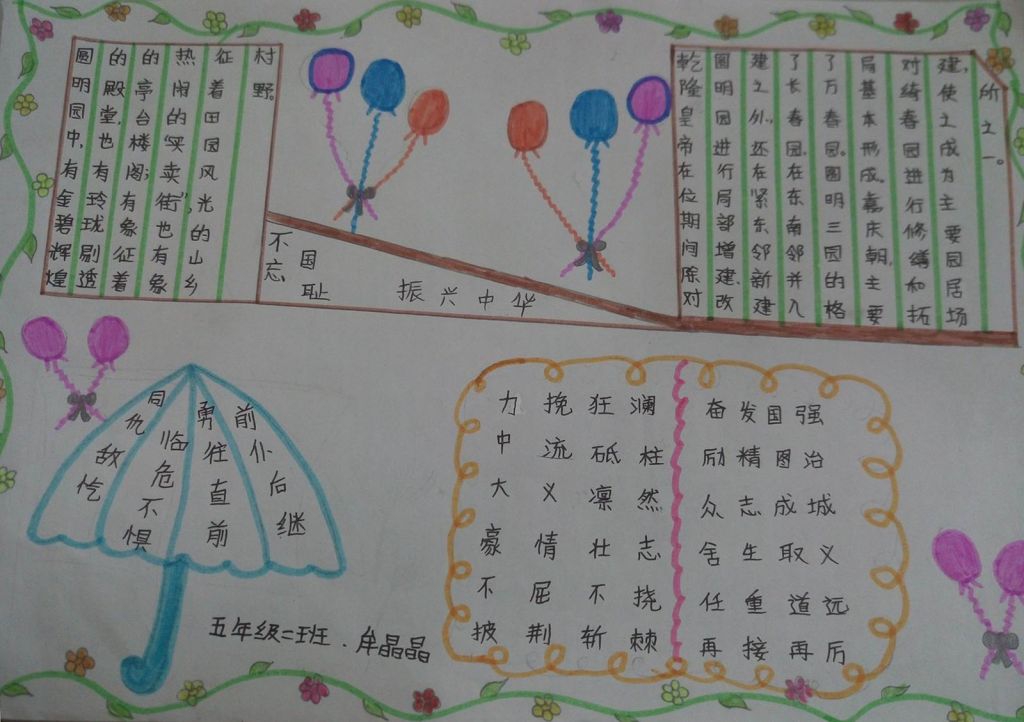 圆明园中,有金碧辉煌
的殿堂,也有玲珑剔透
的亭台楼阁;有象征着
热闹的“买卖街”,也有象
征着田园风光的山乡
村野。
不忘国耻 振兴中华
乾隆皇帝在位期间除对
圆明园进行局部增建、改
建之外,还在紧东邻新建
了长春园,在东南邻并入
了万春园。圆明三园的格
局基本形成。嘉庆朝,主要
对绮春园进行修缮和拓
建,使之成为主要园居场
所之一。
同仇敌忾
临危不惧
勇往直前
前仆后继
力挽狂澜
中流砥柱
大义凛然
豪情壮志
不屈不挠
披荆斩棘
奋发国强
励精图治
众志成城
舍生取义
任重道远
再接再厉
五年级二班.牟晶晶